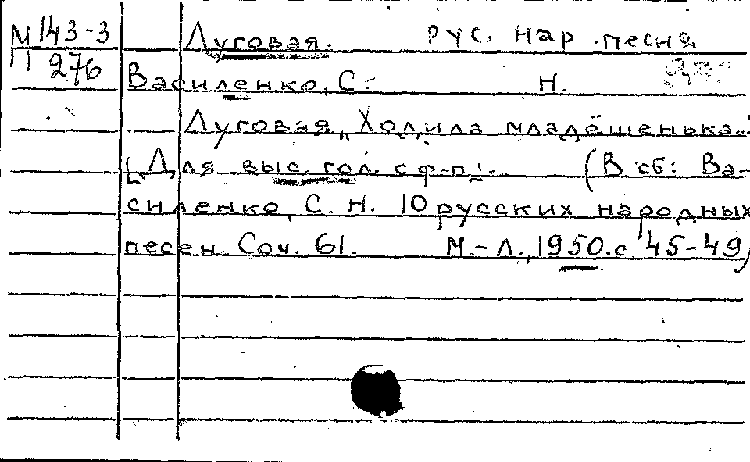 М 143-3 Луговая. рус. нар. песня.
П 276
Василенко, С. Н.
Луговая, "Ходила младёшенька..."
[Для выс. гол. с ф-п]. (В сб: Ва-
силенко, С. Н. 10 русских народных
песен. Соч. 61. М.-Л., 1950. с 45-49)